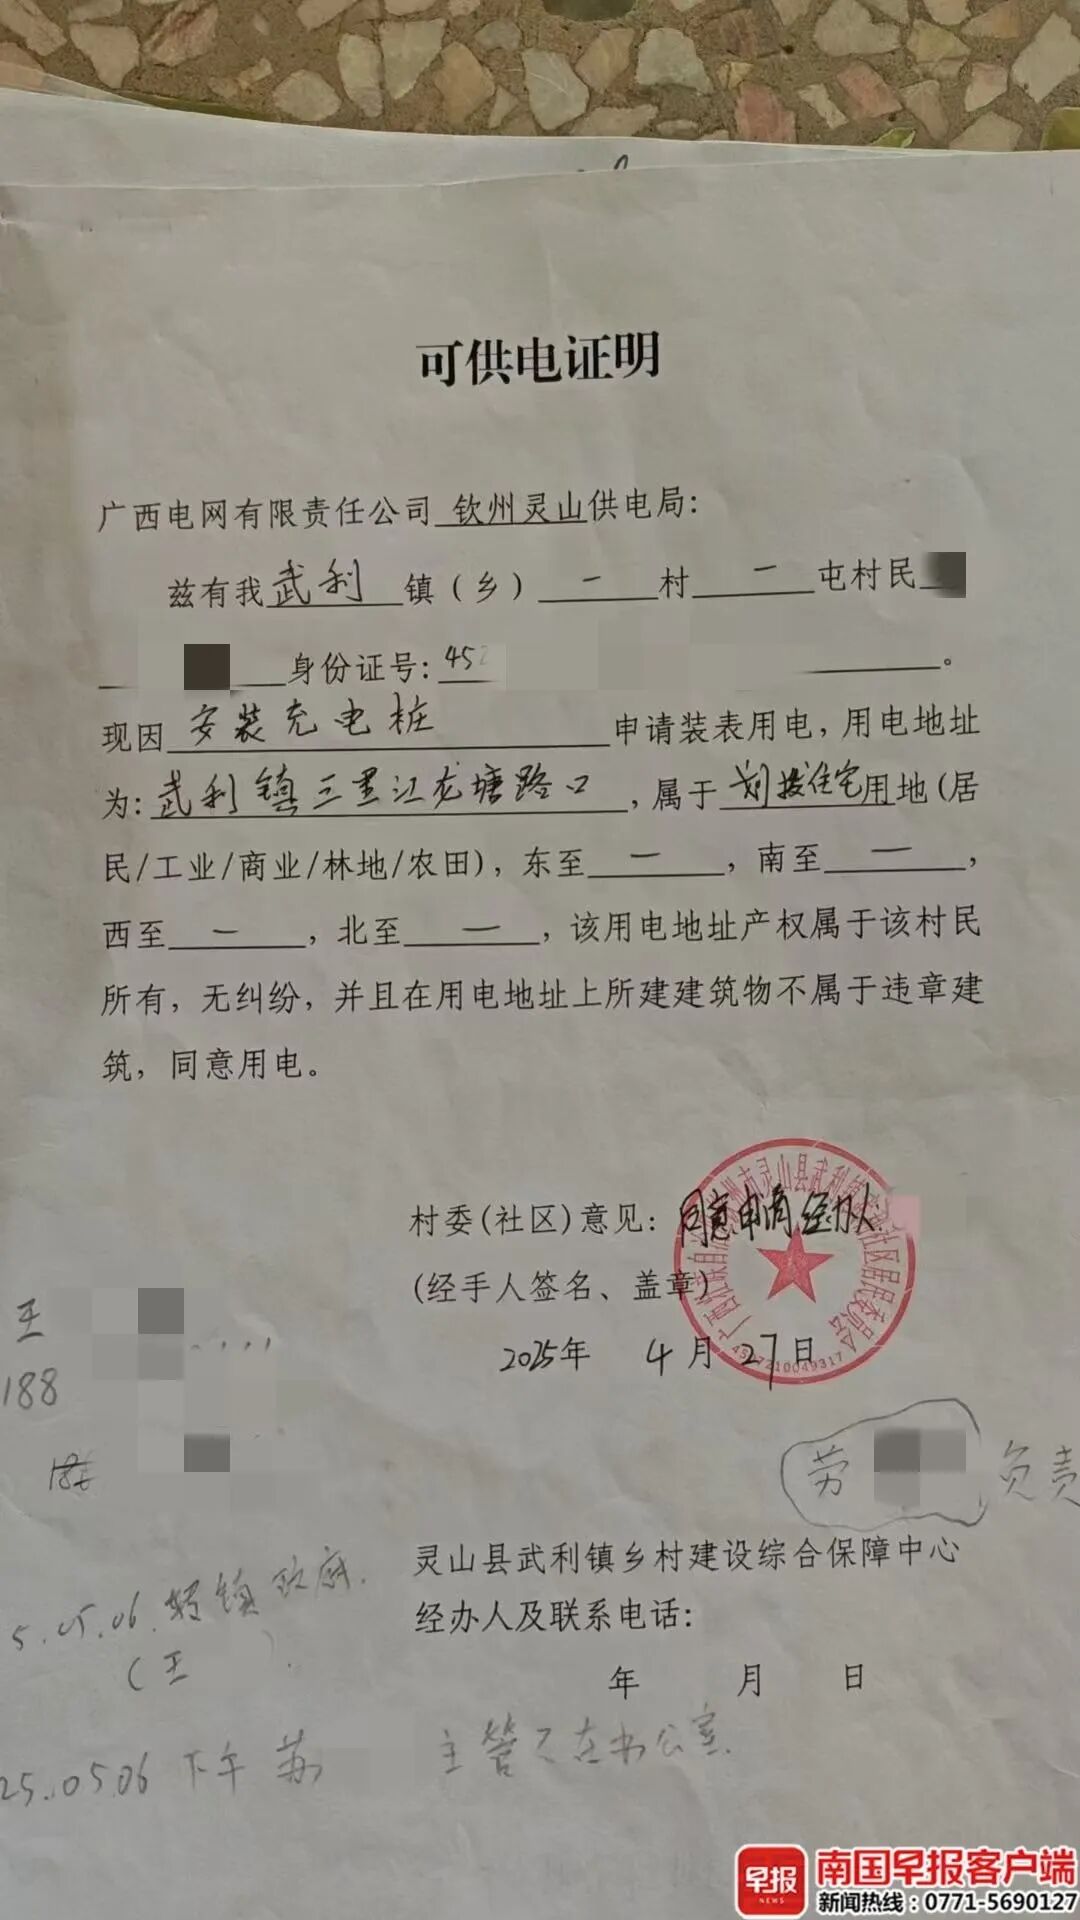 可供电证明
广西电网有限责任公司 钦州灵山供电局：
兹有我武利镇（乡）一村一屯村民
身份证号：452
现因 安装充电桩 申请装表用电，用电地址
为：武利镇三里江龙塘路口，属于划拨住宅用地（居
民/工业/商业/林地/农田），东至一，南至一，
西至一，北至一，该用电地址产权属于该村民
所有，无纠纷，并且在用电地址上所建建筑物不属于违章建
筑，同意用电。
村委（社区）意见：同意申请 经办人
（经手人签名、盖章）
2025年 4月27日
4507210049317
王
188
劳 负责
灵山县武利镇乡村建设综合保障中心
经办人及联系电话：
5.05.06.转镇政府.
（王 ）.
年 月 日
25.05.06 下午 苏 主管不在办公室.
早报
NEWS
南国早报客户端
新闻热线：0771-5690127